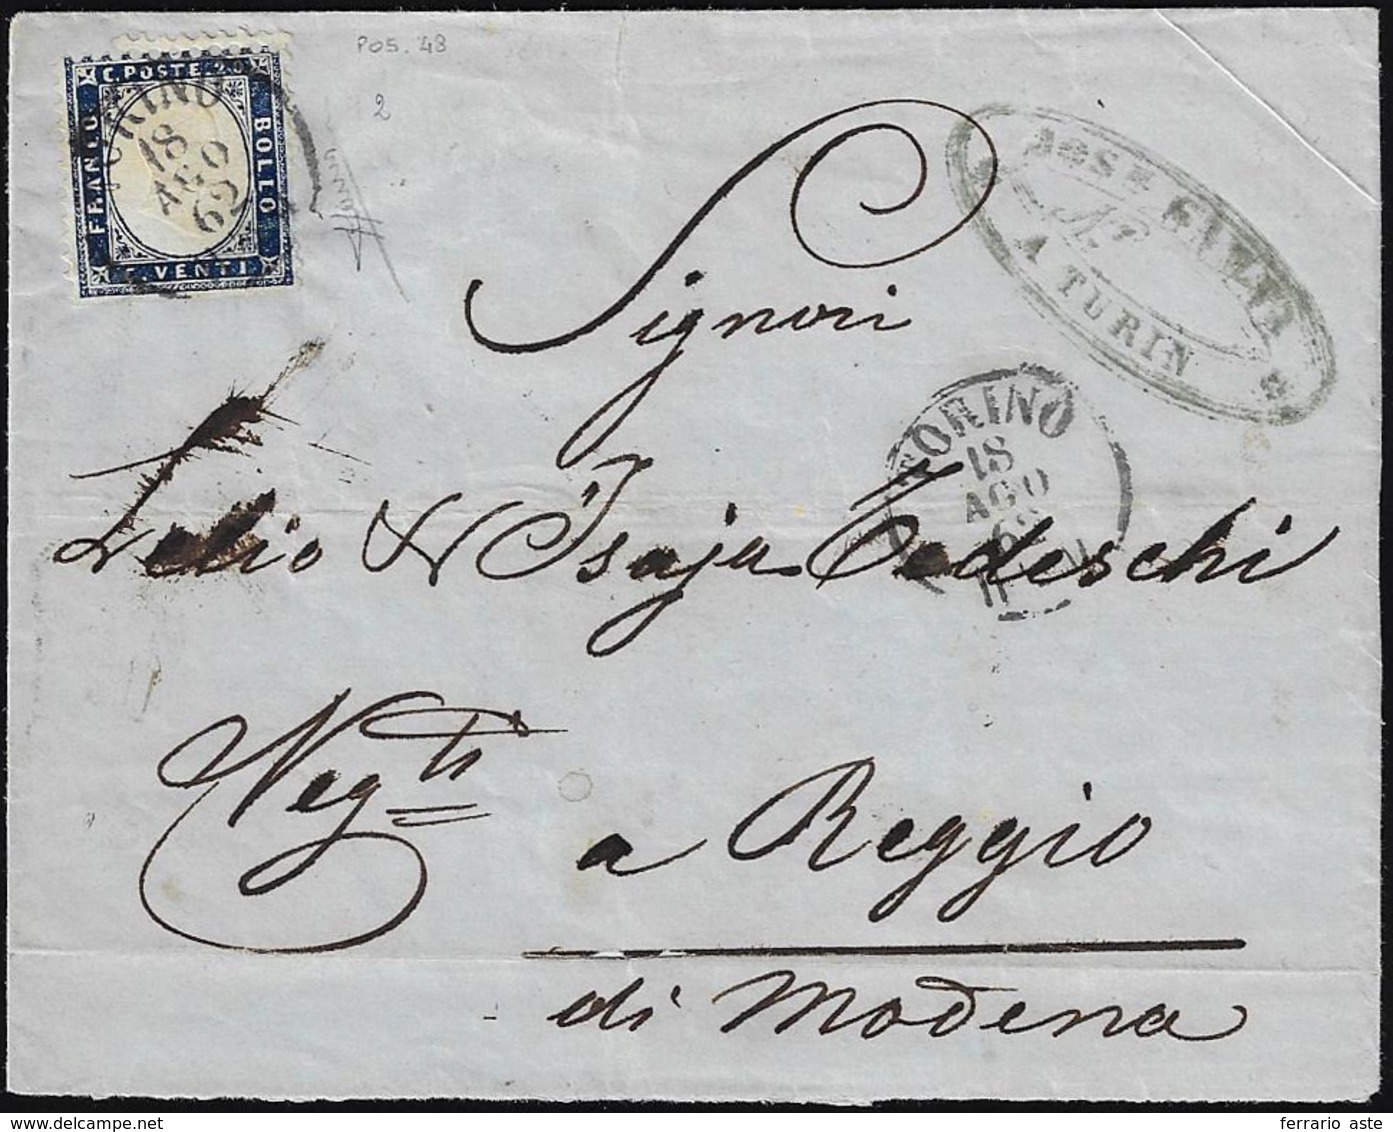 POS. 48
2
C. POSTE 20
FRANCO
BOLLO
C. VENTI
TORINO
18
AGO
62
A TURIN
TORINO
18
AGO
62
Signori
Lelio & Isaja Tedeschi
Neg.ti
a Reggio
di Modena
ferrario aste